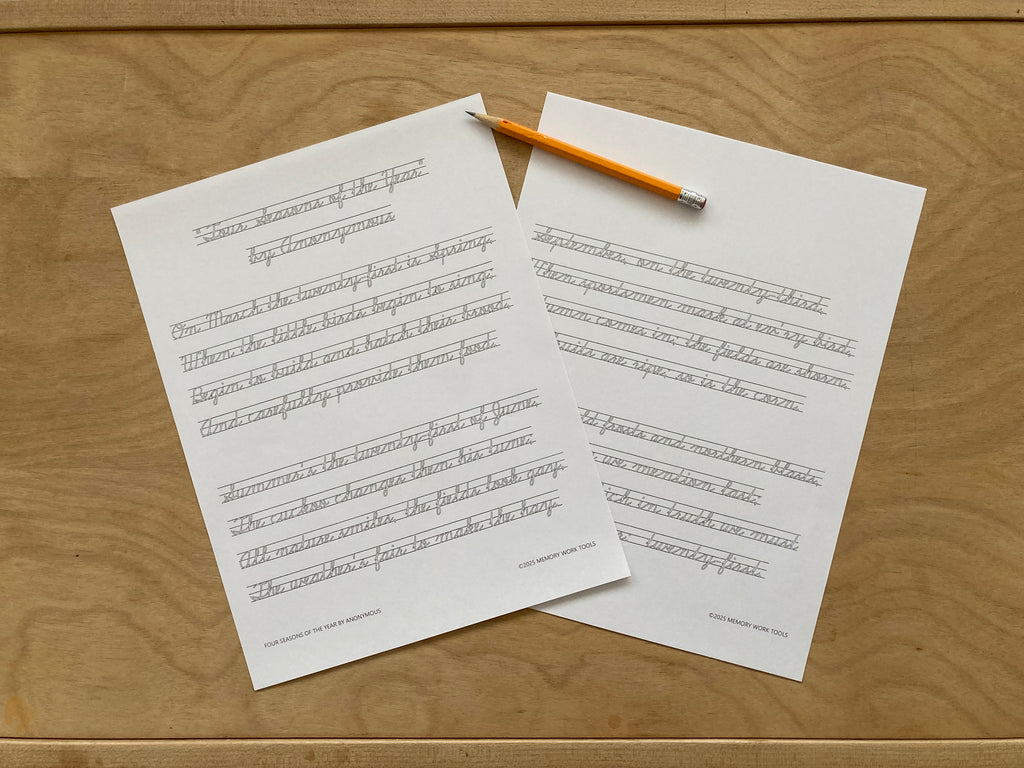 "Four Seasons of the Year"
by Anonymous
On March the twenty-first is Spring,
When the little birds begin to sing;
Begin to build and hatch their brood,
And carefully provide them food.
Summer's the twenty-first of June,
The cuckoo changes then his tune;
All nature smiles, the fields look gay,
The weather's fair to make the hay.
FOUR SEASONS OF THE YEAR BY ANONYMOUS
©2025 MEMORY WORK TOOLS
September, on the twenty-third,
Then sportsmen mark at ev'ry bird,
comes in; the fields are shorn,
are ripe; so is the corn.
frosts and northern blasts,
we mention last,
in truth we must
twenty-first.
©2025 MEMORY WORK TOOLS